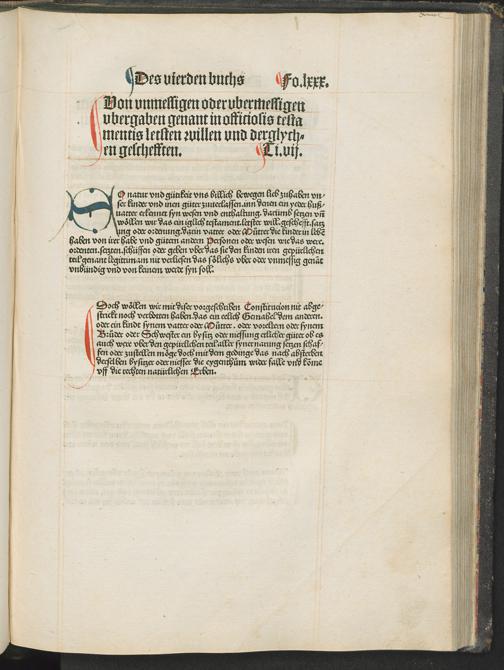 Des vierden buchs Fo.lxxx.
Von vnmessigen oder vbermessigen
vbergaben genant in officiosis testa
mentis letsten willen vnd derglych-
en geschefften. Ti.vij.
So natur vnd gütikeit vns billich bewegen lieb zuhaben vn-
ser kinder vnd inen güter zuuerlassen.inn denen ein yeder huß-
uatter erkennet syn wesen vnd enthaltung.darumb setzen vñ
wöllen wir das ein iglich testament.letster will.geschefft.satz
ung oder ordenung.darin vatter oder Mütter die kinder in liebe
haben von irer habe vnd gütern andern Personen oder wesen wie das were.
ordenten.setzen.schüffen oder geben vber das sie den kinden iren gepürlichen
teil genant legitimam nit verliessen das söllichs vber oder vnmessig genãt
vnbündig vnd von keinem werde syn soll.
Doch wöllen wir mit diser vorgeschriben Constitucion nit abge-
strickt noch verbotten haben.das ein etlich Gemahel dem anderen.
oder ein kindt synem vatter oder Mütter. oder voreltern oder synem
Brüder oder Schwester ein bysitz oder niessung etlicher güter ob es
auch were vber den gepürlichen teil aller syner narung setzen schaf-
fen oder zustellen möge doch mit dem gedinge das nach absterben
derselben bysitzer oder niesser die eygenthům wider falle vnd kőme
vff die rechten natürlichen Erben.